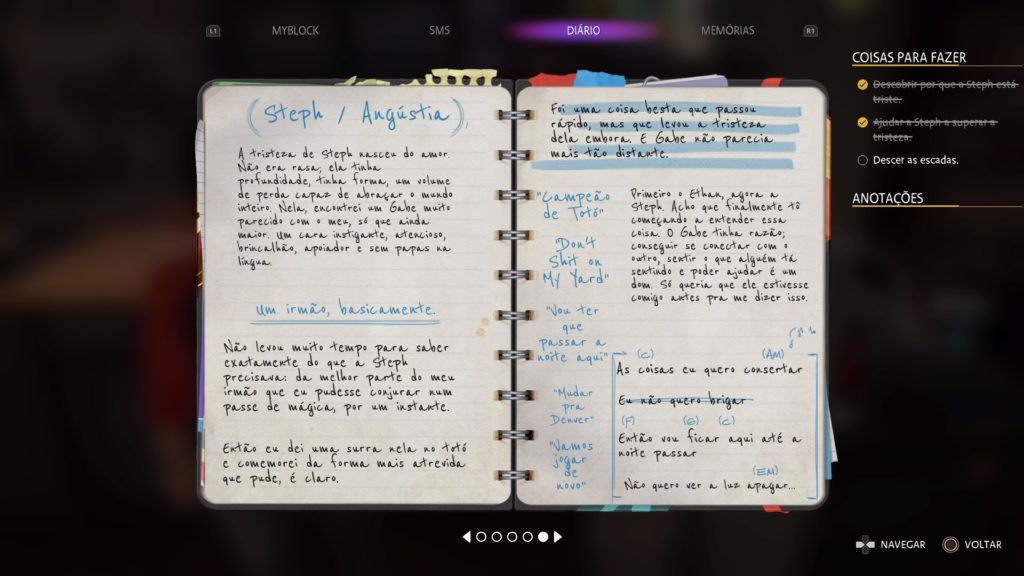 L1
MYBLOCK
SMS
DIÁRIO
MEMÓRIAS
R1
(Steph / Angústia),
A tristeza de Steph nasceu do amor.
Não era rasa; ela tinha
profundidade, tinha forma, um volume
de perda capaz de abraçar o mundo
inteiro. Nela, encontrei um Gabe muito
parecido com o meu, só que ainda
maior. Um cara instigante, atencioso,
brincalhão, apoiador e sem papas na
língua.
Um irmão, basicamente.
Não levou muito tempo para saber
exatamente do que a Steph
precisava: da melhor parte do meu
irmão que eu pudesse conjurar num
passe de mágica, por um instante.
Então eu dei uma surra nela no totó
e comemorei da forma mais atrevida
que pude, é claro.
Foi uma coisa besta que passou
rápido, mas que levou a tristeza
dela embora. E Gabe não parecia
mais tão distante.
"Campeão
de Totó"
"Don't
Shit on
My Yard"
"Vou ter
que
passar a
noite aqui"
"Mudar
pra
Denver"
"Vamos
jogar
de
novo"
Primeiro o Ethan, agora a
Steph. Acho que finalmente tô
começando a entender essa
coisa. O Gabe tinha razão;
conseguir se conectar com o
outro, sentir o que alguém tá
sentindo e poder ajudar é um
dom. Só queria que ele estivesse
comigo antes pra me dizer isso.
(C) (AM)
As coisas eu quero consertar
Eu não quero brigar
(F) (G) (C)
Então vou ficar aqui até a
noite passar
(EM)
Não quero ver a luz apagar...
COISAS PARA FAZER
Descobrir por que a Steph está
triste.
Ajudar a Steph a superar a
tristeza.
Descer as escadas.
ANOTAÇÕES
NAVEGAR
VOLTAR